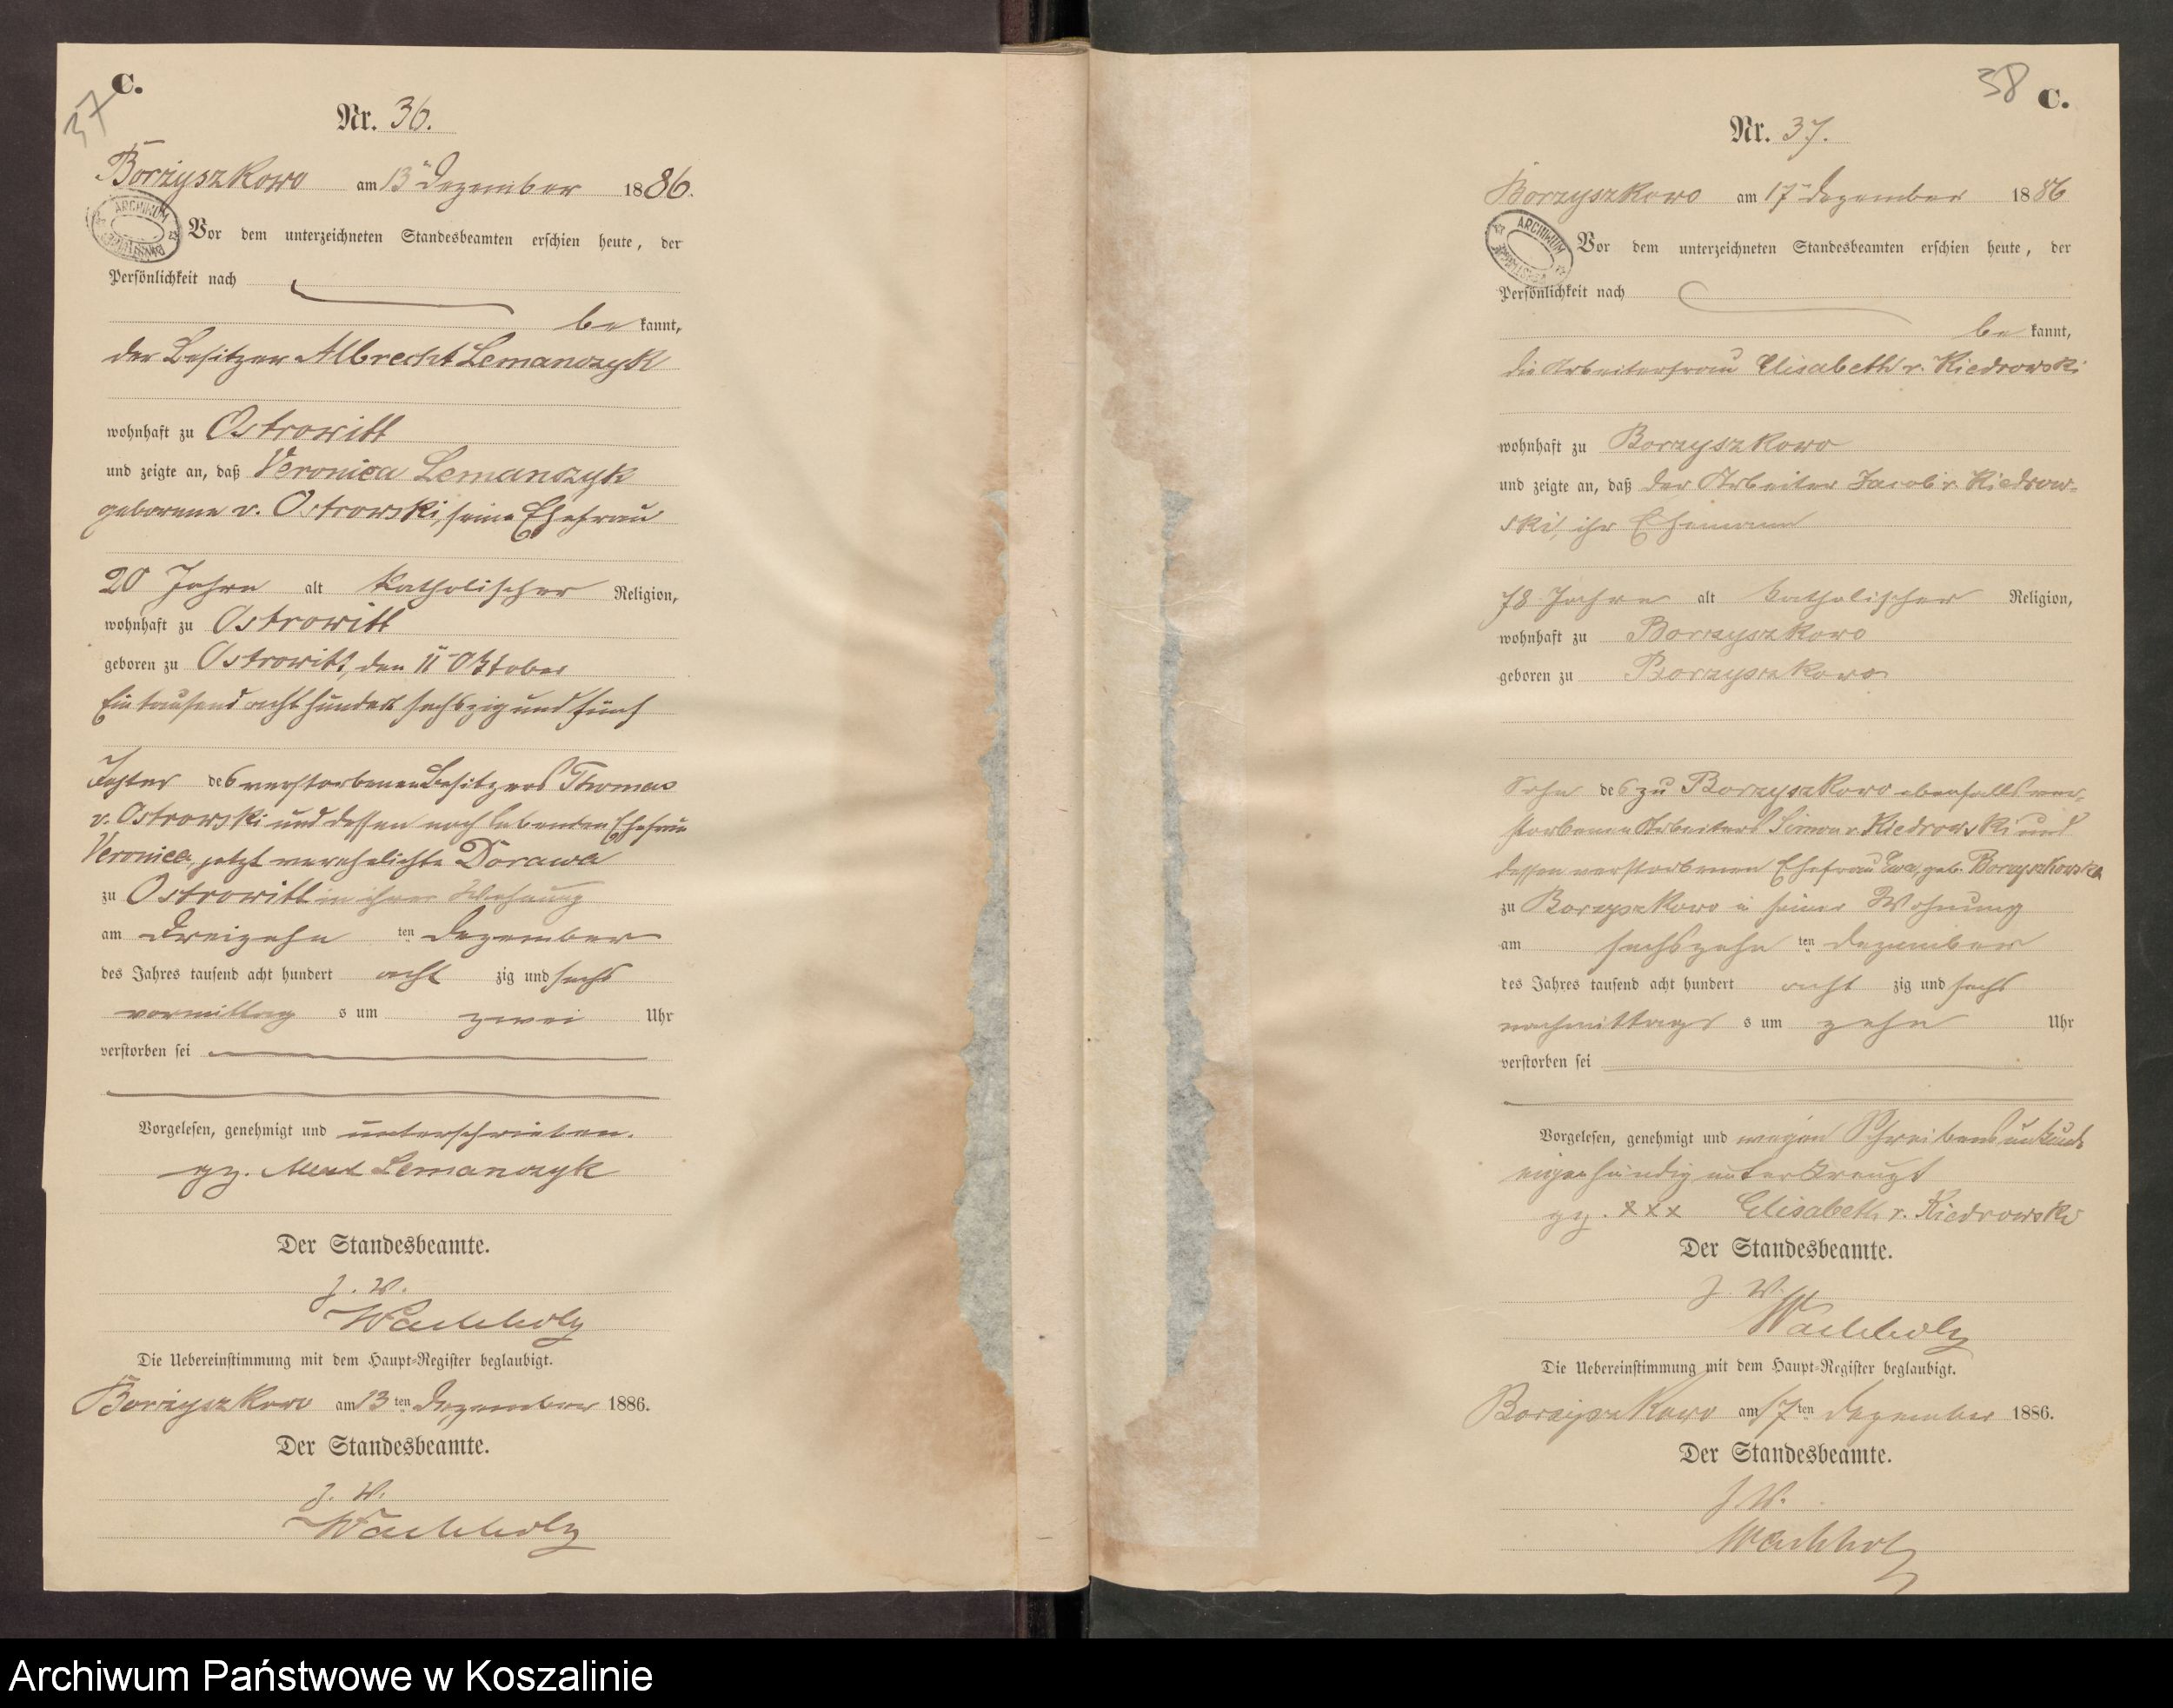 37
C.
Nr. 36.
Borzyszkowo am 13ten Dezember 1886.
Vor dem unterzeichneten Standesbeamten erschien heute, der
Persönlichkeit nach
bekannt,
der Besitzer Albrecht Lemanczyk
wohnhaft zu Ostrowitt
und zeigte an, daß Veronica Lemanczyk
geborene v. Ostrowski, seine Ehefrau
20 Jahre alt katholischer Religion,
wohnhaft zu Ostrowitt
geboren zu Ostrowitt, den 11ten Oktober
Ein tausend acht hundert sechszig und fünf
Tochter des verstorbenen Besitzers Thomas
v. Ostrowski und dessen noch lebenden Ehefrau
Veronica, jetzt verehelichte Dorawa
zu Ostrowitt in ihrer Wohnung
am Dreizehn ten Dezember
des Jahres tausend acht hundert acht zig und sechs
vormittag s um zwei Uhr
verstorben sei
Vorgelesen, genehmigt und unterschrieben.
gz. Lemanczyk
Der Standesbeamte.
J. V.
Wachholz
Die Uebereinstimmung mit dem Haupt-Register beglaubigt.
Borzyszkowo am 13ten Dezember 1886.
Der Standesbeamte.
J. V.
Wachholz
38
C.
Nr. 37.
Borzyszkowo am 17ten Dezember 1886
Vor dem unterzeichneten Standesbeamten erschien heute, der
Persönlichkeit nach
bekannt,
die Arbeiterfrau Elisabeth v. Kiedrowski
wohnhaft zu Borzyszkowo
und zeigte an, daß der Arbeiter Jacob v. Kiedrow-
ski, ihr Ehemann
78 Jahre alt katholischer Religion,
wohnhaft zu Borzyszkowo
geboren zu Borzyszkowo
Sohn des zu Borzyszkowo ebenfalls ver-
storbenen Arbeiters Simon v. Kiedrowski und
dessen verstorbenen Ehefrau Eva, geb. Borzyszkowska
zu Borzyszkowo in seiner Wohnung
am sechszehn ten Dezember
des Jahres tausend acht hundert acht zig und sechs
nachmittags s um zehn Uhr
verstorben sei
Vorgelesen, genehmigt und wegen Schreibensunkunde
eigenhändig unterkreuzt
gz. xxx Elisabeth v. Kiedrowski
Der Standesbeamte.
J. V.
Wachholz
Die Uebereinstimmung mit dem Haupt-Register beglaubigt.
Borzyszkowo am 17ten Dezember 1886.
Der Standesbeamte.
J. V.
Wachholz
Archiwum Państwowe w Koszalinie